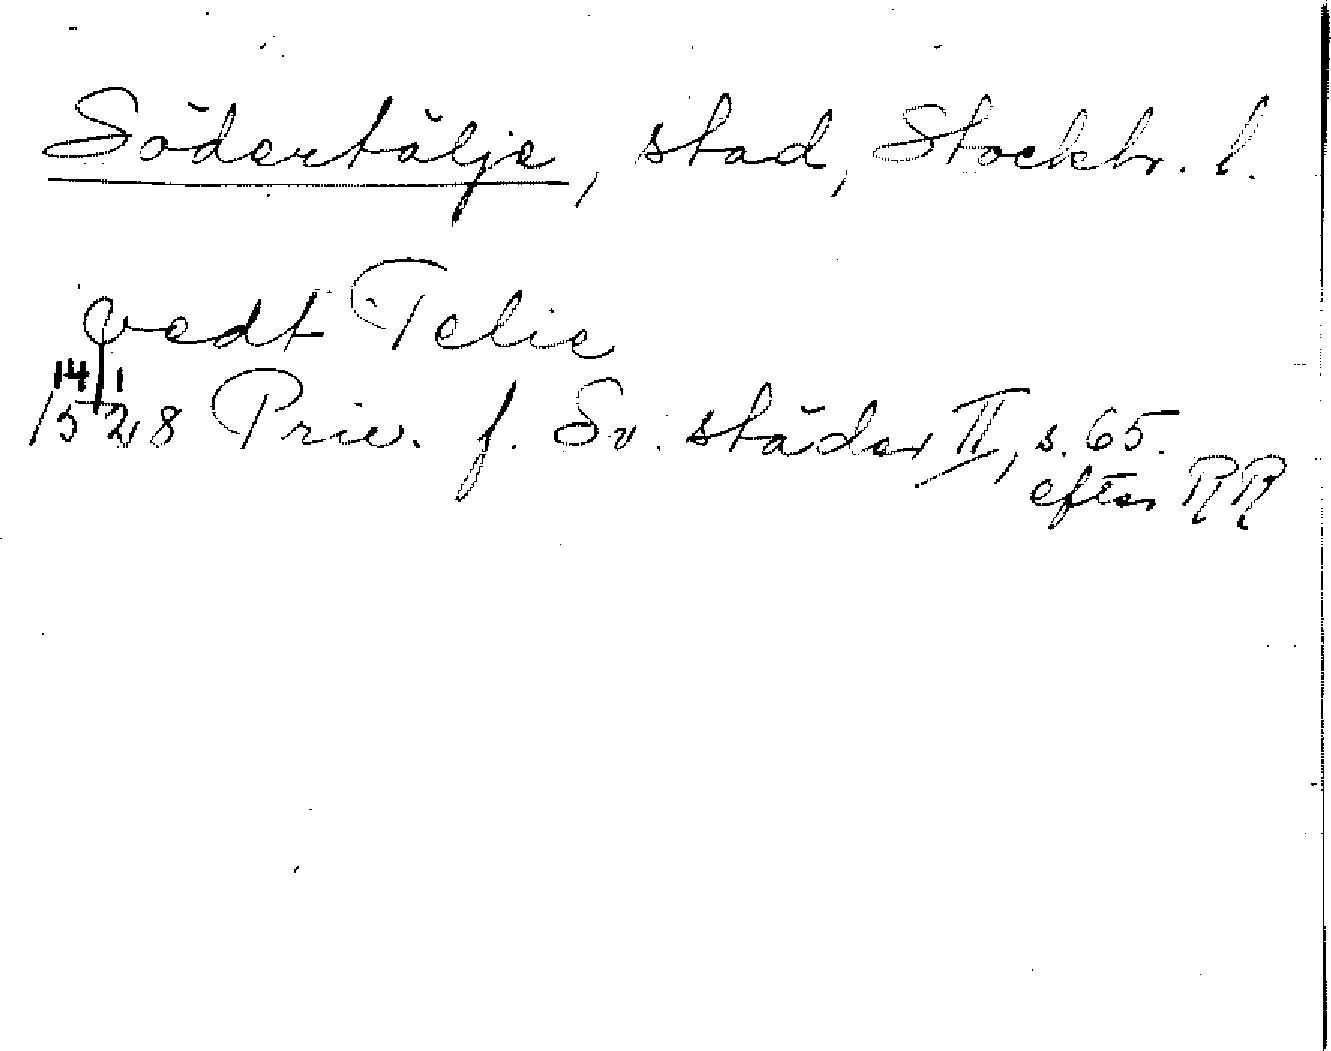 Södertälje, stad, Stockh. l.
vedt Telie
14/1
1528 Priv. f. Sv. städer II, s. 65.
efter RR